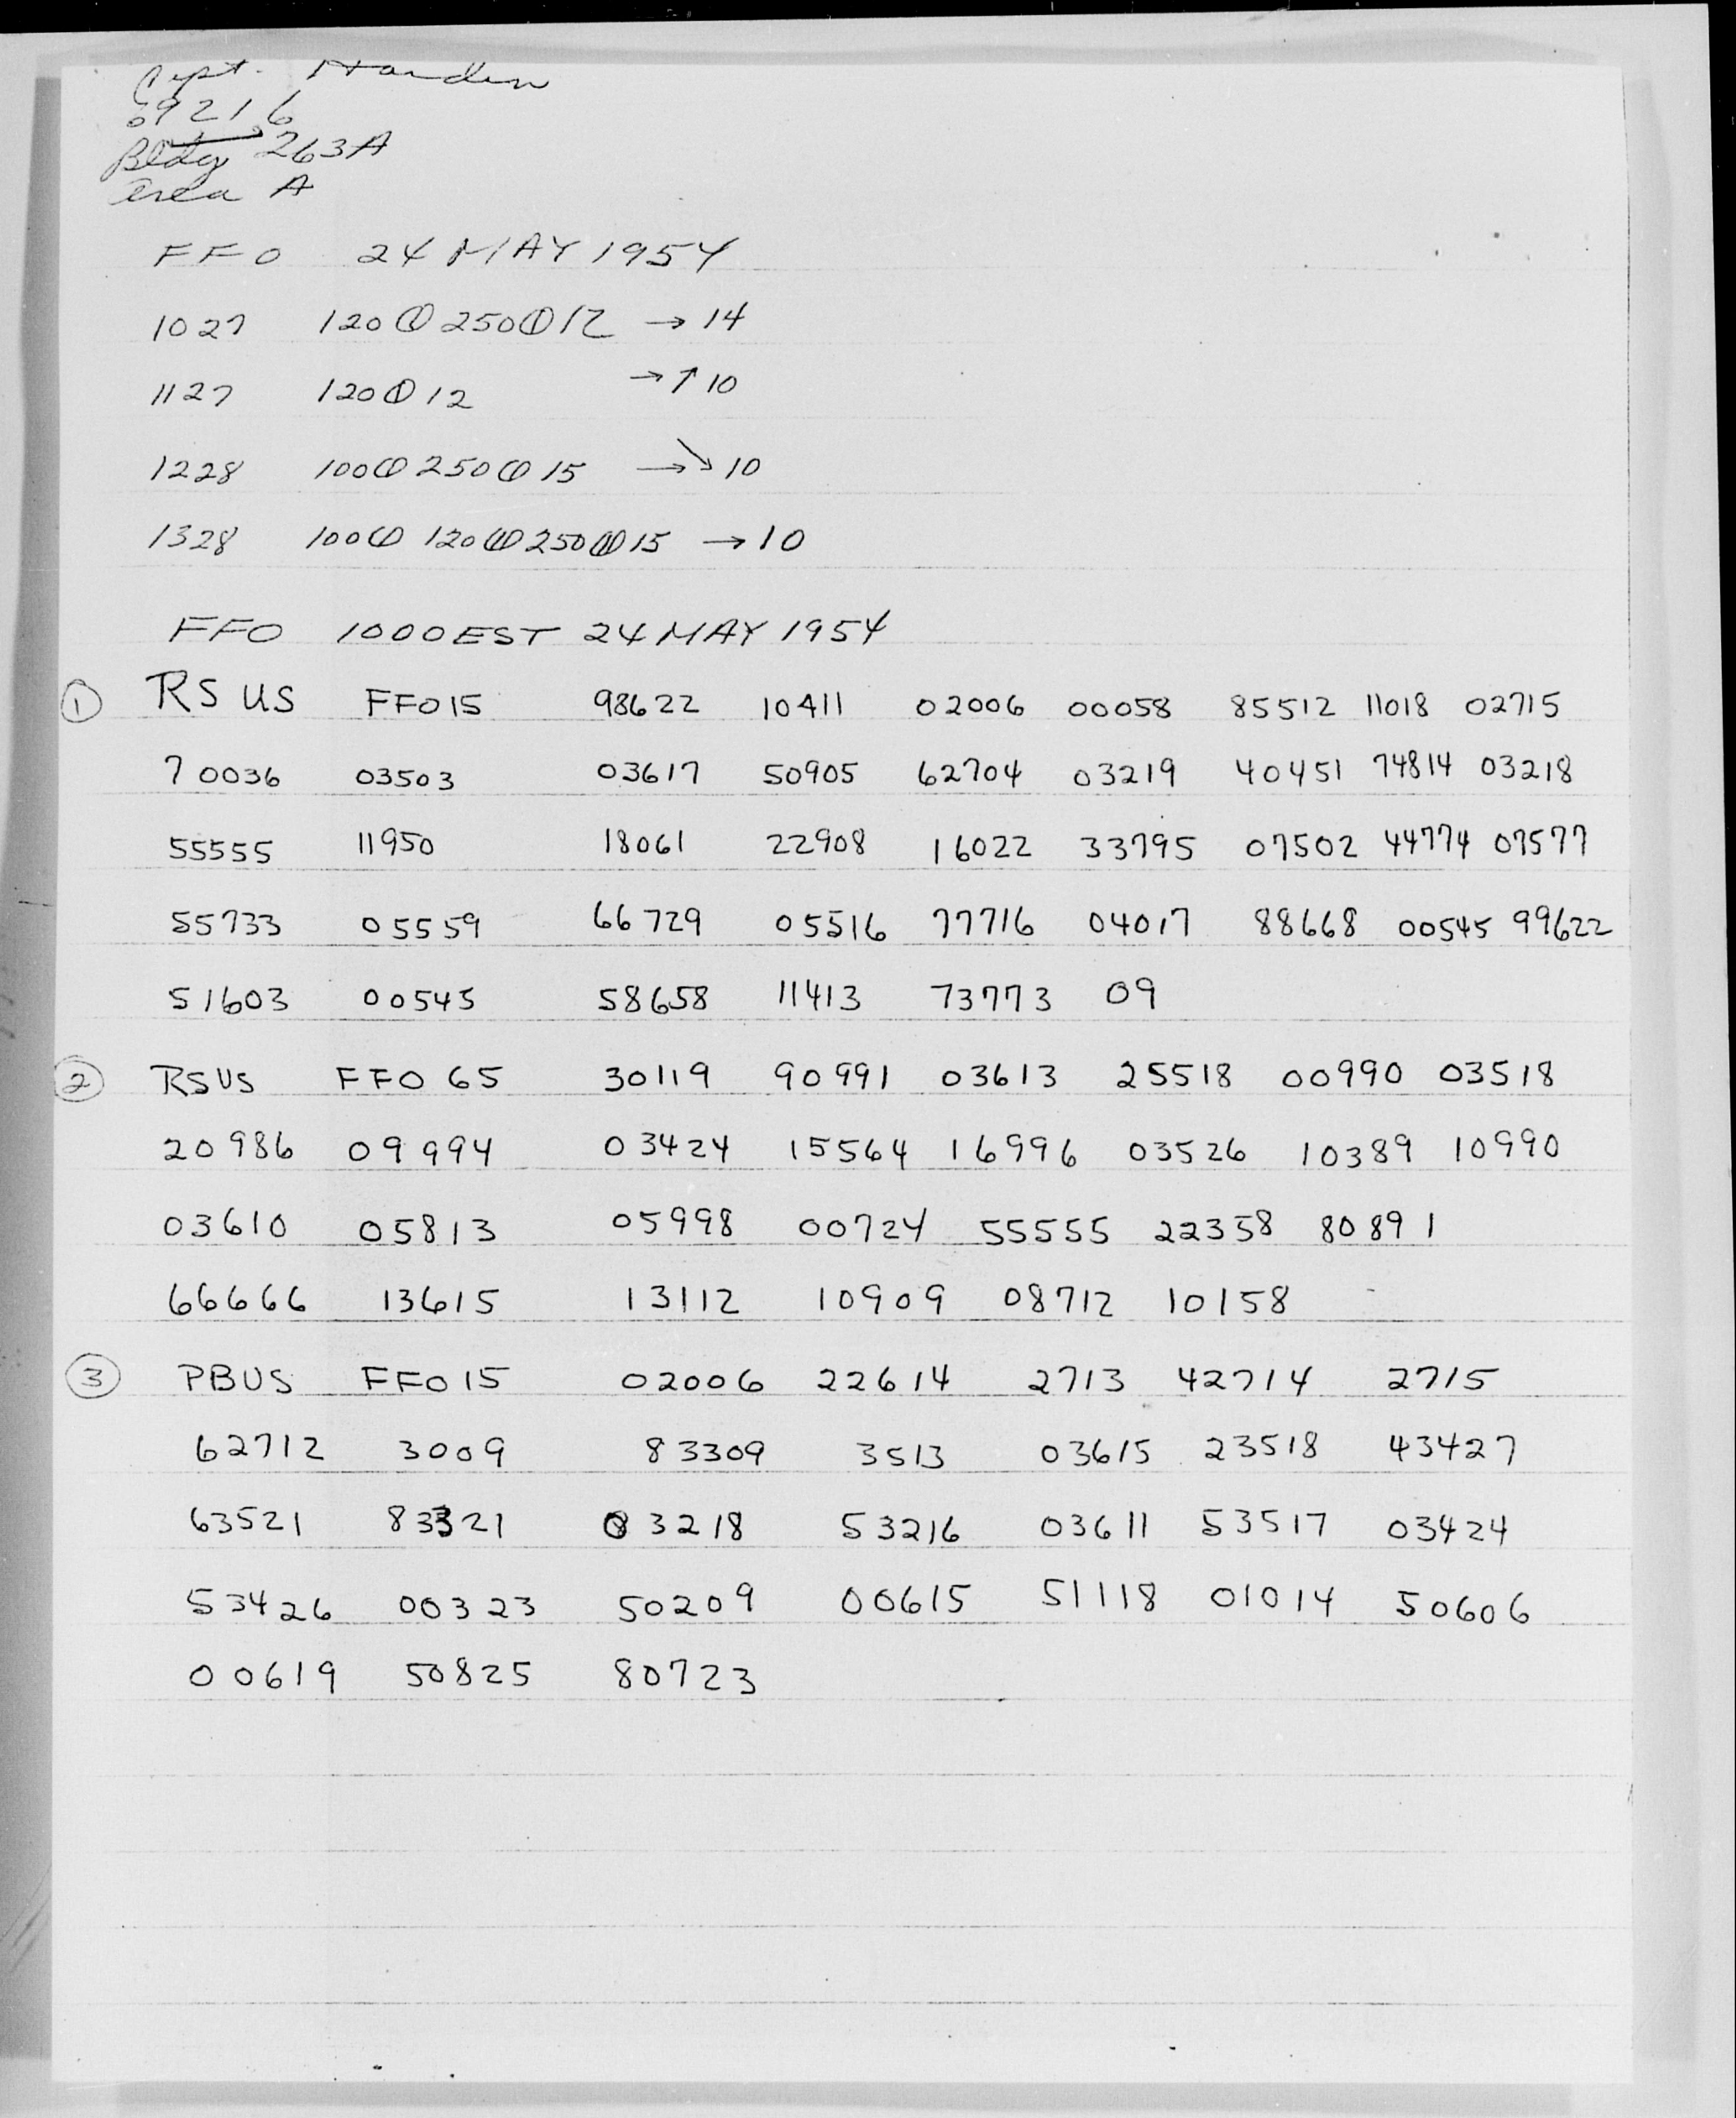 Capt. Harden
69216
Bldg 263A
Area A
FFO 24 MAY 1954
1027 120⦶250⦶12 → 14
1127 120⦶12 →↑10
1228 100⦶250⦶15 →↘10
1328 100⦶ 120⦶250⦶15 →10
FFO 1000EST 24 MAY 1954
① RS US FFO15 98622 10411 02006 00058 85512 11018 02715
70036 03503 03617 50905 62704 03219 40451 74814 03218
55555 11950 18061 22908 16022 33795 07502 44774 07577
55733 05559 66729 05516 77716 04017 88668 00545 99622
51603 00545 58658 11413 73773 09
② RSUS FFO 65 30119 90991 03613 25518 00990 03518
20986 09994 03424 15564 16996 03526 10389 10990
03610 05813 05998 00724 55555 22358 80891
66666 13615 13112 10909 08712 10158
③ PBUS FFO15 02006 22614 2713 42714 2715
62712 3009 83309 3513 03615 23518 43427
63521 83321 03218 53216 03611 53517 03424
53426 00323 50209 00615 51118 01014 50606
00619 50825 80723